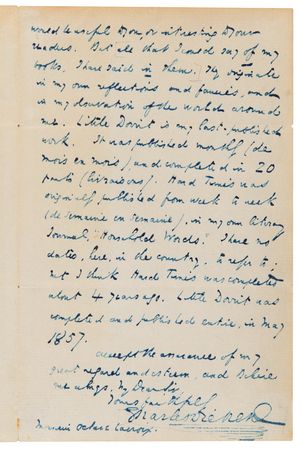 would be useful to you, or interesting to your
readers. But all that I could say of my
books, I have said in them. They originate
in my own reflections and fancies, and
in my observation of the world around
me. Little Dorrit is my last published
work. It was published monthly (de
mois en mois), and completed in 20
parts (livraisons). Hard Times was
originally published from week to week
(de semaine en semaine), in my own
Journal "Household Words." I have no
dates, here, in the country, to refer to:
but I think Hard Times was completed
about 4 years ago. Little Dorrit was
completed and published entire, in May
1857.
accept the assurance of my
great regard and esteem, and believe
me always, My Dear Sir
Yours faithfully
Charles Dickens
Monsieur Octave Lacroix.